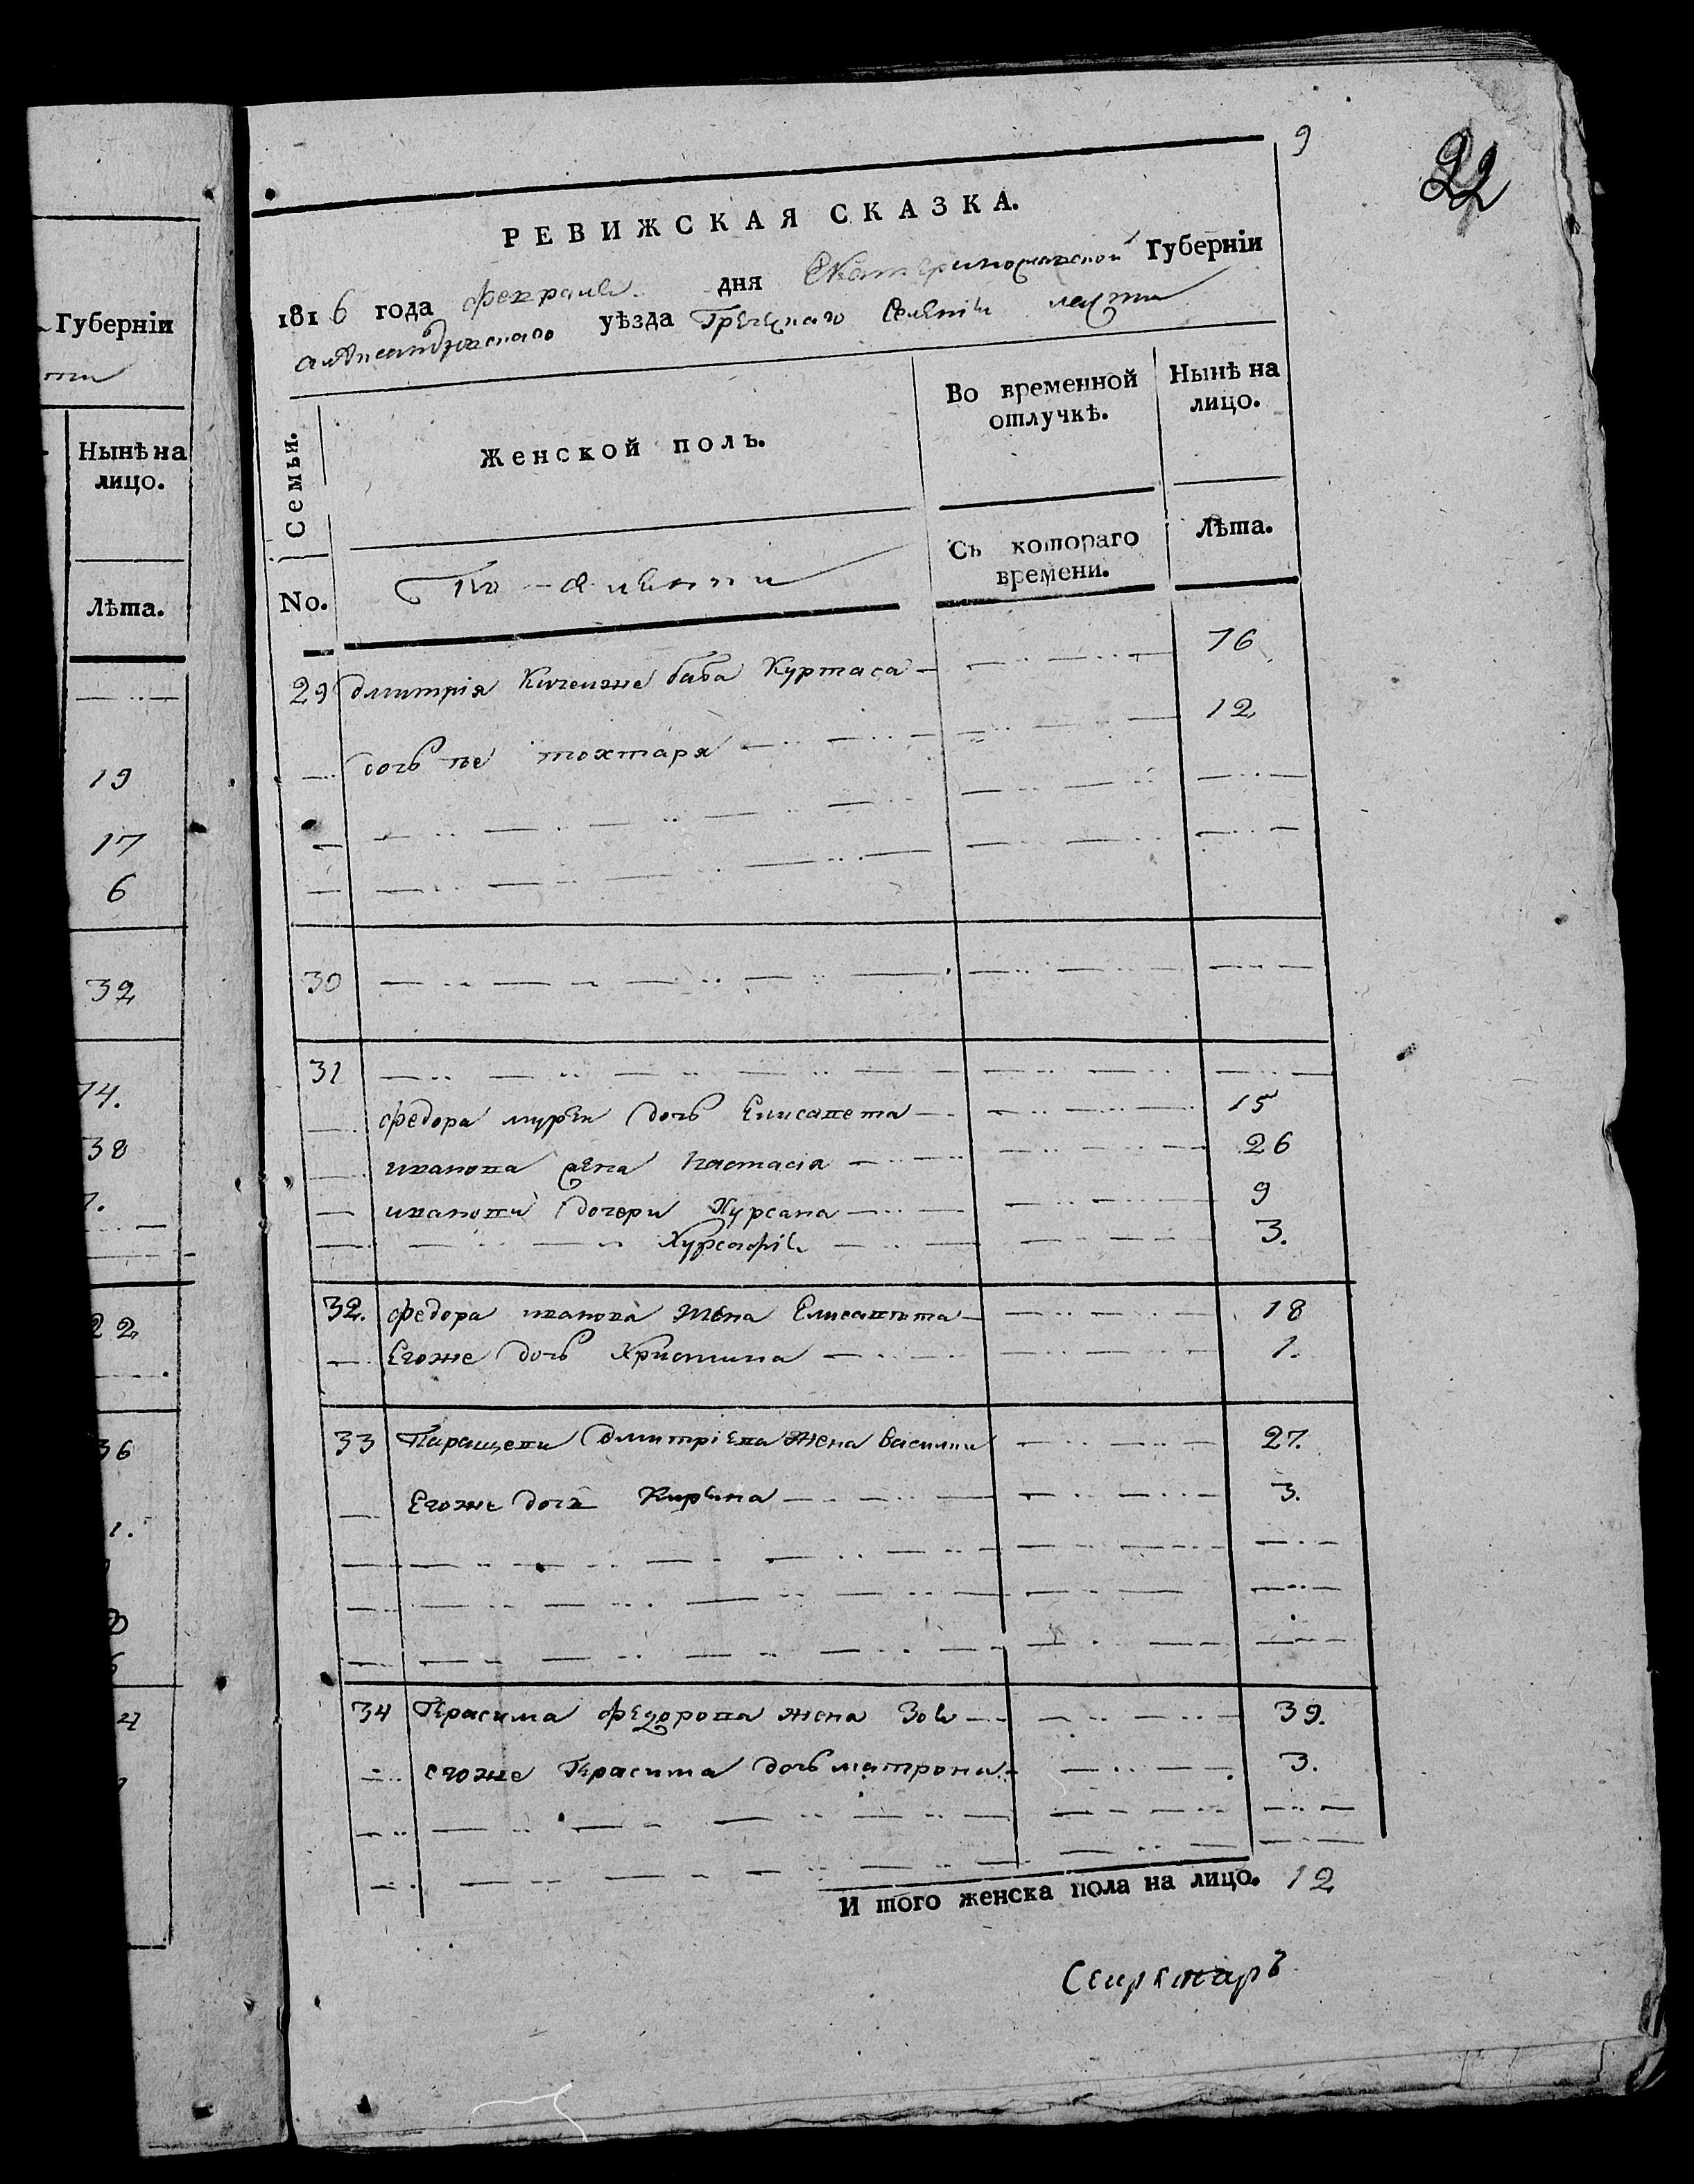 9
22
РЕВИЖСКАЯ СКАЗКА.
1816 года февраля дня Екатеринославской Губерніи
александровскаго уѣзда Греческаго Селенія
Семьи.
Женской полъ.
Во временной отлучкѣ.
Нынѣ на лицо.
No.
Съ котораго времени.
Лѣта.
29 дмитрія баба Куртаса 76
дочь тохтаря 12
30
31
федора дочь Елисавета 15
иванова жена настасія 26
ивановы дочери Хурсана 9
Хурсофія 3.
32. федора иванова жена Елисавета 18
Егоже дочь Христина 1.
33 Паращеви дмитріева жена васили 27.
Егоже дочь Кирьяна 3.
34 Герасима федорова жена Зоя 39.
егоже Герасима дочь матрона 3.
И того женска пола на лицо. 12
Губерніи
Нынѣ на лицо.
Лѣта.
19
17
6
32
74.
38
22
36